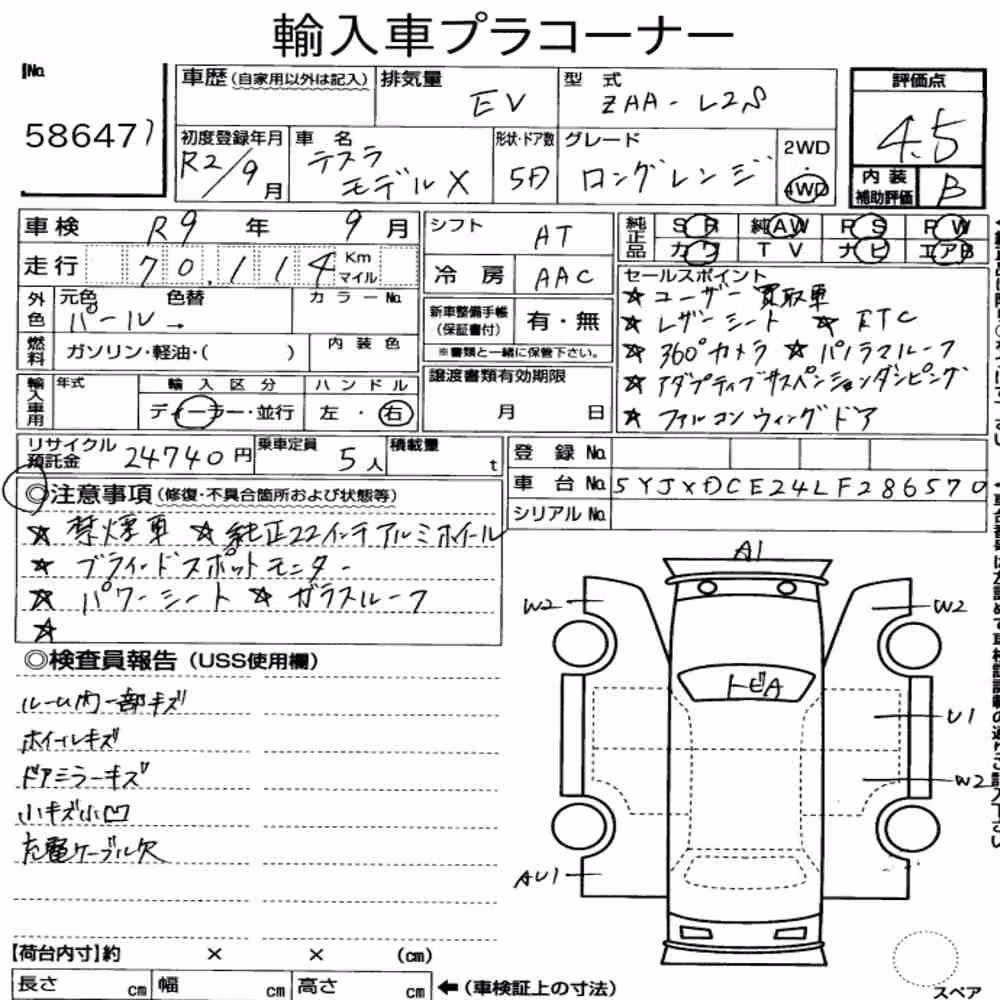 輸入車プラコーナー
No.
58647
車歴(自家用以外は記入)
排気量 EV
型式 ZAA-L2S
評価点
4.5
初度登録年月 R2/9月
車名 テスラ モデルX
形状・ドア数 5D
グレード ロングレンジ
2WD・4WD
内装補助評価 B
車検 R9年 9月
走行 70,114 Km マイル
外色 元色 パール 色替 → カラーNo.
燃料 ガソリン・軽油・( ) 内装色
輸入車用 年式 輸入区分 ディーラー・並行 ハンドル 左・右
シフト AT
冷房 AAC
新車整備手帳(保証書付) 有・無
※書類と一緒に保管下さい。
譲渡書類有効期限
月 日
純正品 SR 純AW PS PW
カワ TV ナビ エアB
セールスポイント
☆ ユーザー買取車
☆ レザーシート ☆ ETC
☆ 360°カメラ ☆ パノラマルーフ
☆ アダプティブサスペンションダンピング
☆ ファルコンウィングドア
リサイクル預託金 24740円
乗車定員 5人
積載量 t
登録No.
車台No. 5YJXDCE24LF286570
シリアルNo.
◎注意事項(修復・不具合箇所および状態等)
☆ 禁煙車 ☆ 純正22インチアルミホイール
☆ ブラインドスポットモニター
☆ パワーシート ☆ ガラスルーフ
☆
◎検査員報告(USS使用欄)
ルーム内一部キズ
ホイールキズ
ドアミラーキズ
小キズ小凹
充電ケーブル欠
A1
W2
W2
トビA
U1
W2
AU1
スペア
【荷台内寸】約 × × (cm)
長さ cm 幅 cm 高さ cm
←(車検証上の寸法)